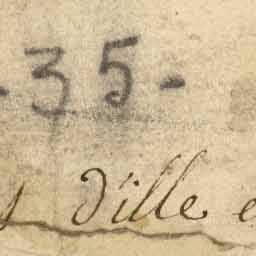 -35-
s d'ille e